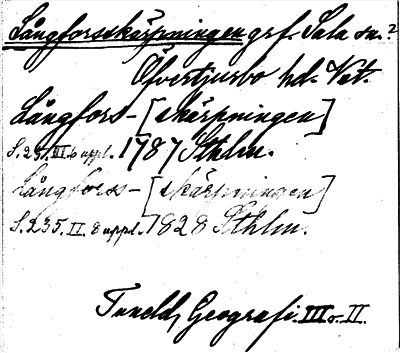 Långforsskärpningen grf. Sala sn.?
Öfvertjurbo hd. Vstm.
Långfors-[skärpningen]
S. 231. III. 6 uppl. 1787 Sthlm.
Långfors-[skärpningen]
S. 235. II. 8 uppl. 1828 Sthlm.
Tuneld, Geografi. III o. II.